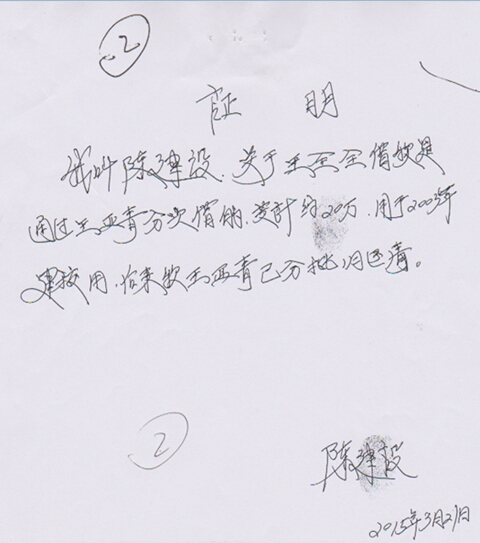 ②
证 明
我叫陈建设,关于王金全借款是
通过王西青分次借的,共计约20万,用于2003年
建校用,后来款王西青已分批归还清。
②
陈建设
2015年3月21日